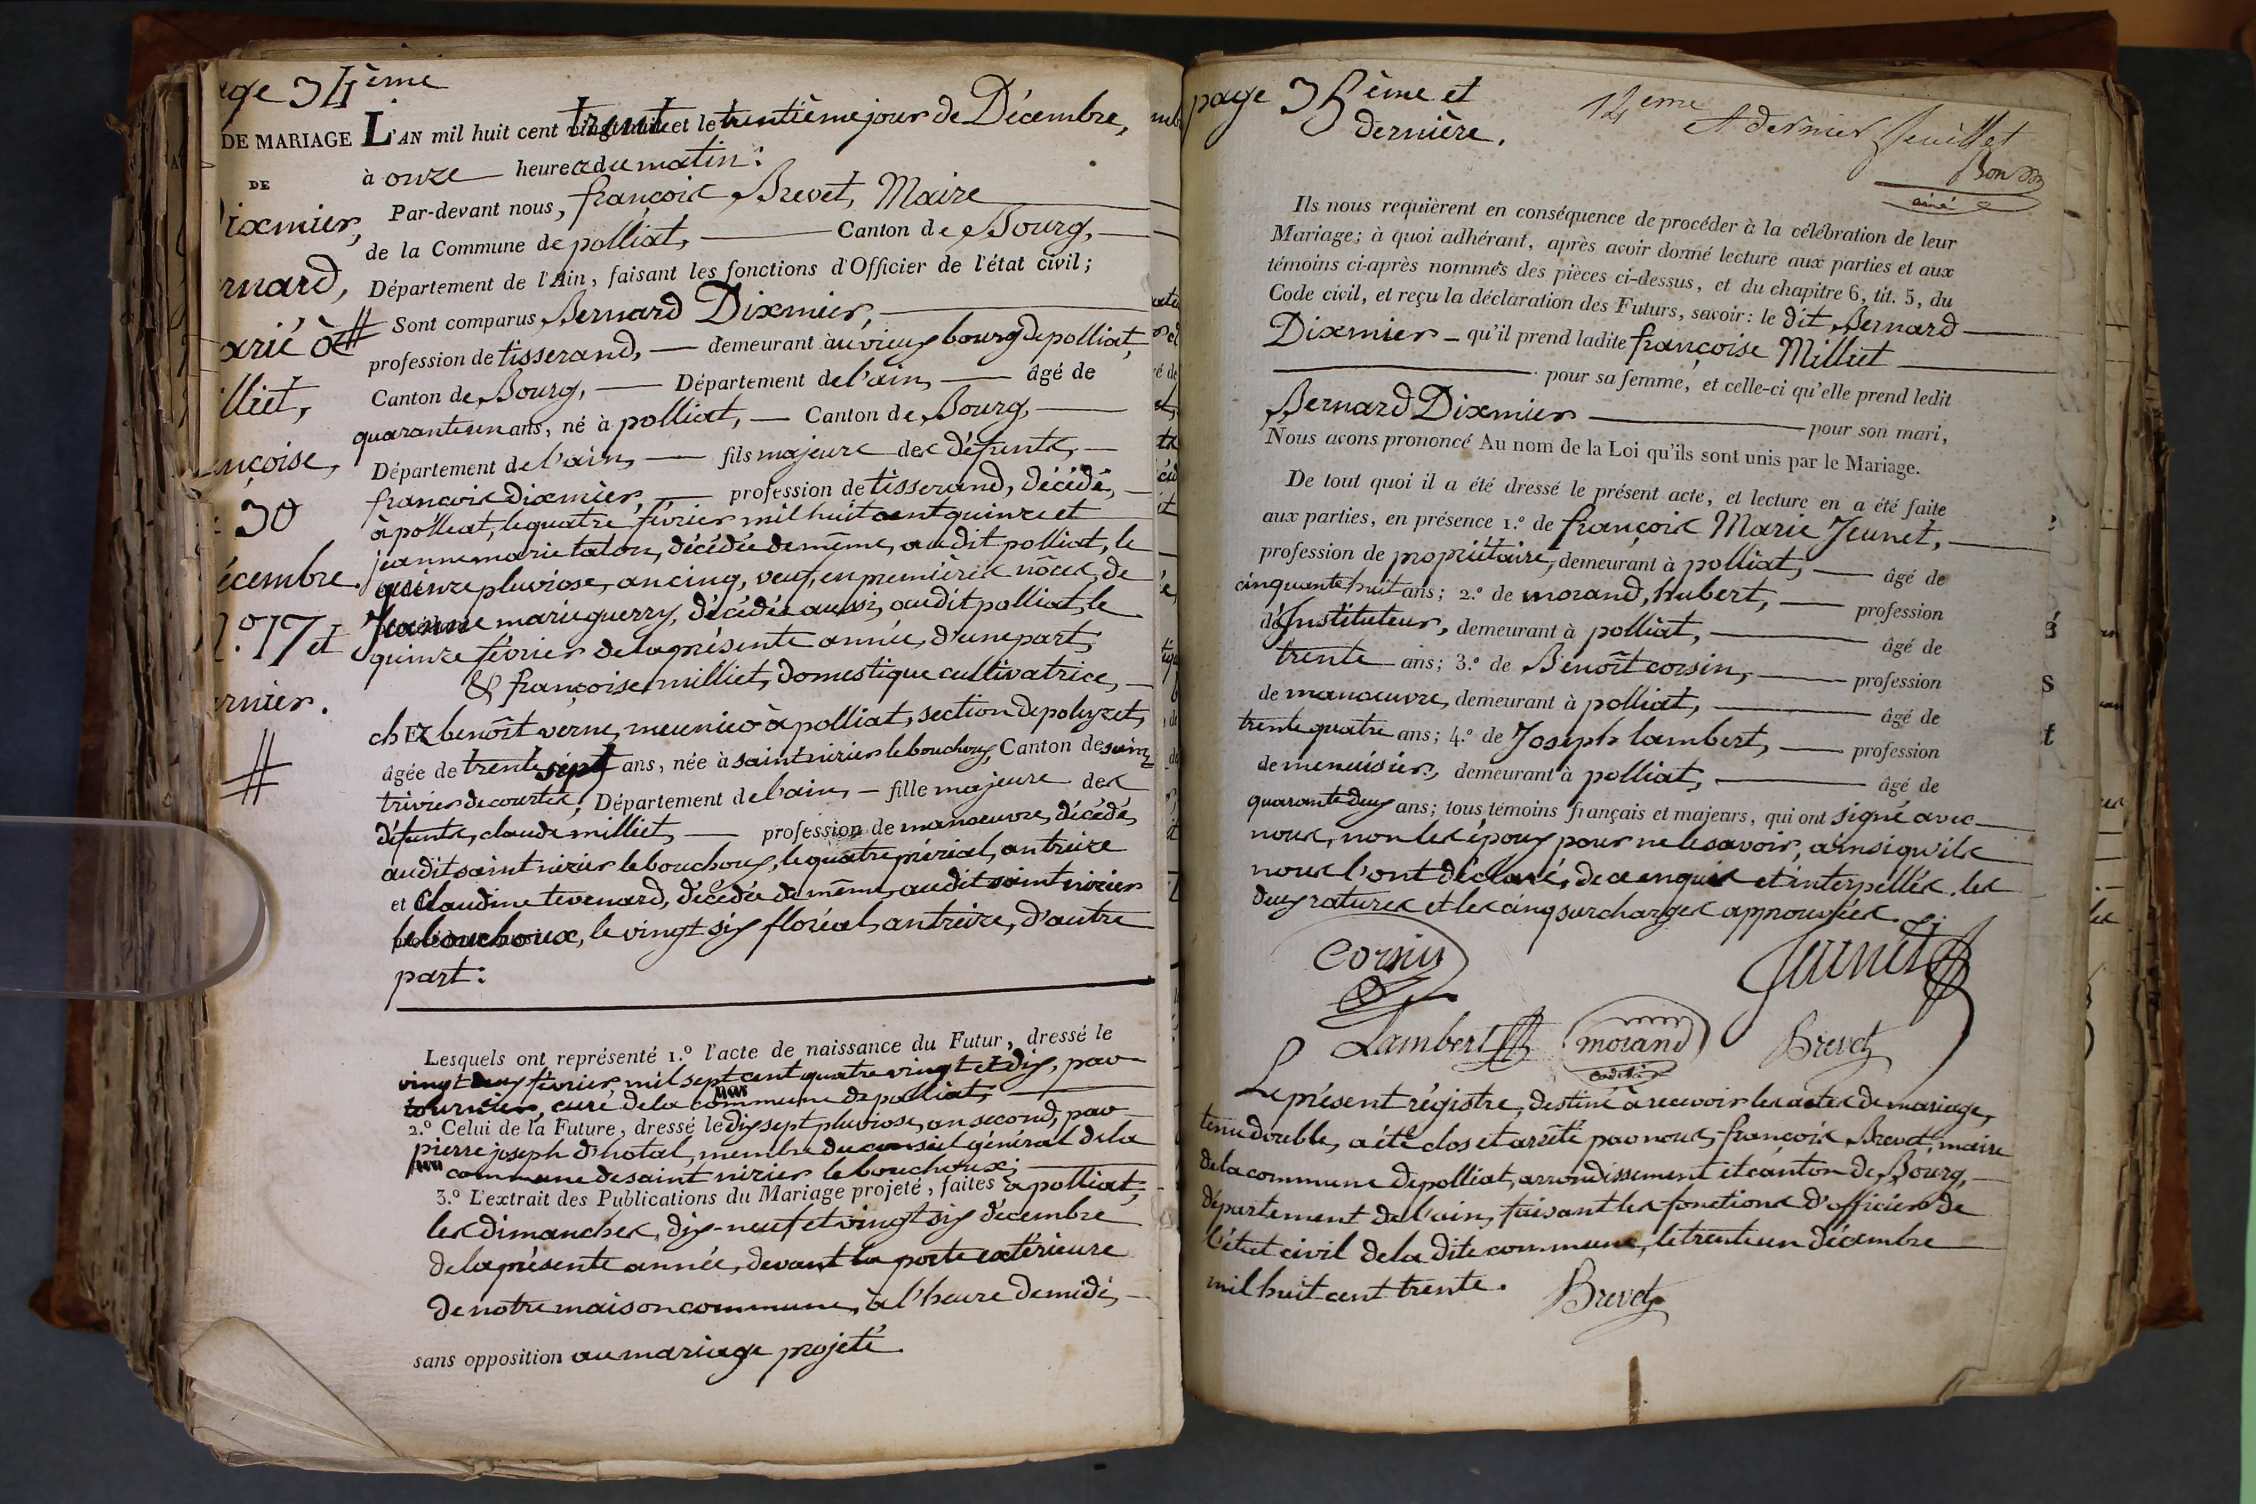 age 34ème
DE MARIAGE
DE
Dixmier,
rnard,
arié à
lliet,
nçoise,
30
écembre.
N.º 17 et
ernier.
#
L'AN mil huit cent trente et le trentième jour de Décembre,
à onze heures du matin:
Par-devant nous, françois Brevet, Maire
de la Commune de polliat, Canton de Bourg,
Département de l'Ain, faisant les fonctions d'Officier de l'état civil;
# Sont comparus Bernard Dixmier,
profession de tisserand, demeurant au vieux bourg de polliat,
Canton de Bourg, Département de l'ain, âgé de
quarante un ans, né à polliat, Canton de Bourg,
Département de l'ain, fils majeure des défunts,
françois dixmier, profession de tisserand, décédé,
à polliat, le quatre février mil huit cent quinze et
jeanne marie talon, décédée de même, audit polliat, le
quinze pluviose, an cinq, veuf, en premières nôces, de
Jeanne marie guerry, décédée aussi, audit polliat, le
quinze février de la présente année, d'une part;
& françoise milliet, domestique cultivatrice,
chez benoît verne, meunier à polliat, section de polyzet,
âgée de trente sept ans, née à saint nizier le bouchoux, Canton de saint
trivier de courtes, Département de l'ain, fille majeure des
défunts, claude milliet, profession de manoeuvre, décédé,
audit saint nizier le bouchoux, le quatre prérial, an treize
et Claudine tevenard, décédée de même, audit saint nizier
le bouchoux, le vingt six floréal, an treize, d'autre
part:
Lesquels ont représenté 1.º l'acte de naissance du Futur, dressé le
vingt deux février mil sept cent quatre vingt et dix, par
tournier, curé de la commune de polliat,
2.º Celui de la Future, dressé le dix sept pluviose, an second, par
pierre joseph d'hotal, membre du conseil général de la
commune de saint nizier le bouchoux;
3.º L'extrait des Publications du Mariage projeté, faites à polliat,
les dimanches, dix-neuf et vingt six décembre
de la présente année, devant la porte extérieure
de notre maison commune, à l'heure de midi,
sans opposition au mariage projeté.
page 35ème et
dernière.
14eme et dernier feuillet
Bondon
ainé
Ils nous requièrent en conséquence de procéder à la célébration de leur
Mariage; à quoi adhérant, après avoir donné lecture aux parties et aux
témoins ci-après nommés des pièces ci-dessus, et du chapitre 6, tit. 5, du
Code civil, et reçu la déclaration des Futurs, savoir: le dit Bernard
Dixmier qu'il prend ladite françoise Milliet
pour sa femme, et celle-ci qu'elle prend ledit
Bernard Dixmier pour son mari,
Nous avons prononcé Au nom de la Loi qu'ils sont unis par le Mariage.
De tout quoi il a été dressé le présent acte, et lecture en a été faite
aux parties, en présence 1.º de françois Marie Jeunet,
profession de propriétaire, demeurant à polliat, âgé de
cinquante huit ans; 2.º de morand, hubert, profession
d'Instituteur, demeurant à polliat, âgé de
trente ans; 3.º de Benoît corsin, profession
de manoeuvre, demeurant à polliat, âgé de
trente quatre ans; 4.º de Joseph lambert, profession
de menuisier, demeurant à polliat, âgé de
quarante deux ans; tous témoins français et majeurs, qui ont signé avec
nous, non les époux pour ne le savoir, ainsi qu'ils
nous l'ont déclaré, de ce enquis et interpellés. les
deux ratures et les cinq surcharges approuvées.
Corsin
Jeunet
Lambert
morand
Brevet
Le présent régistre, destiné à recevoir les actes de mariage,
tenu double, a été clos et arrêté par nous, françois Brevet, maire
de la commune de polliat, arrondissement et canton de Bourg,
département de l'ain, faisant les fonctions d'officier de
l'état civil de la dite commune, le trente un décembre
mil huit cent trente. Brevet